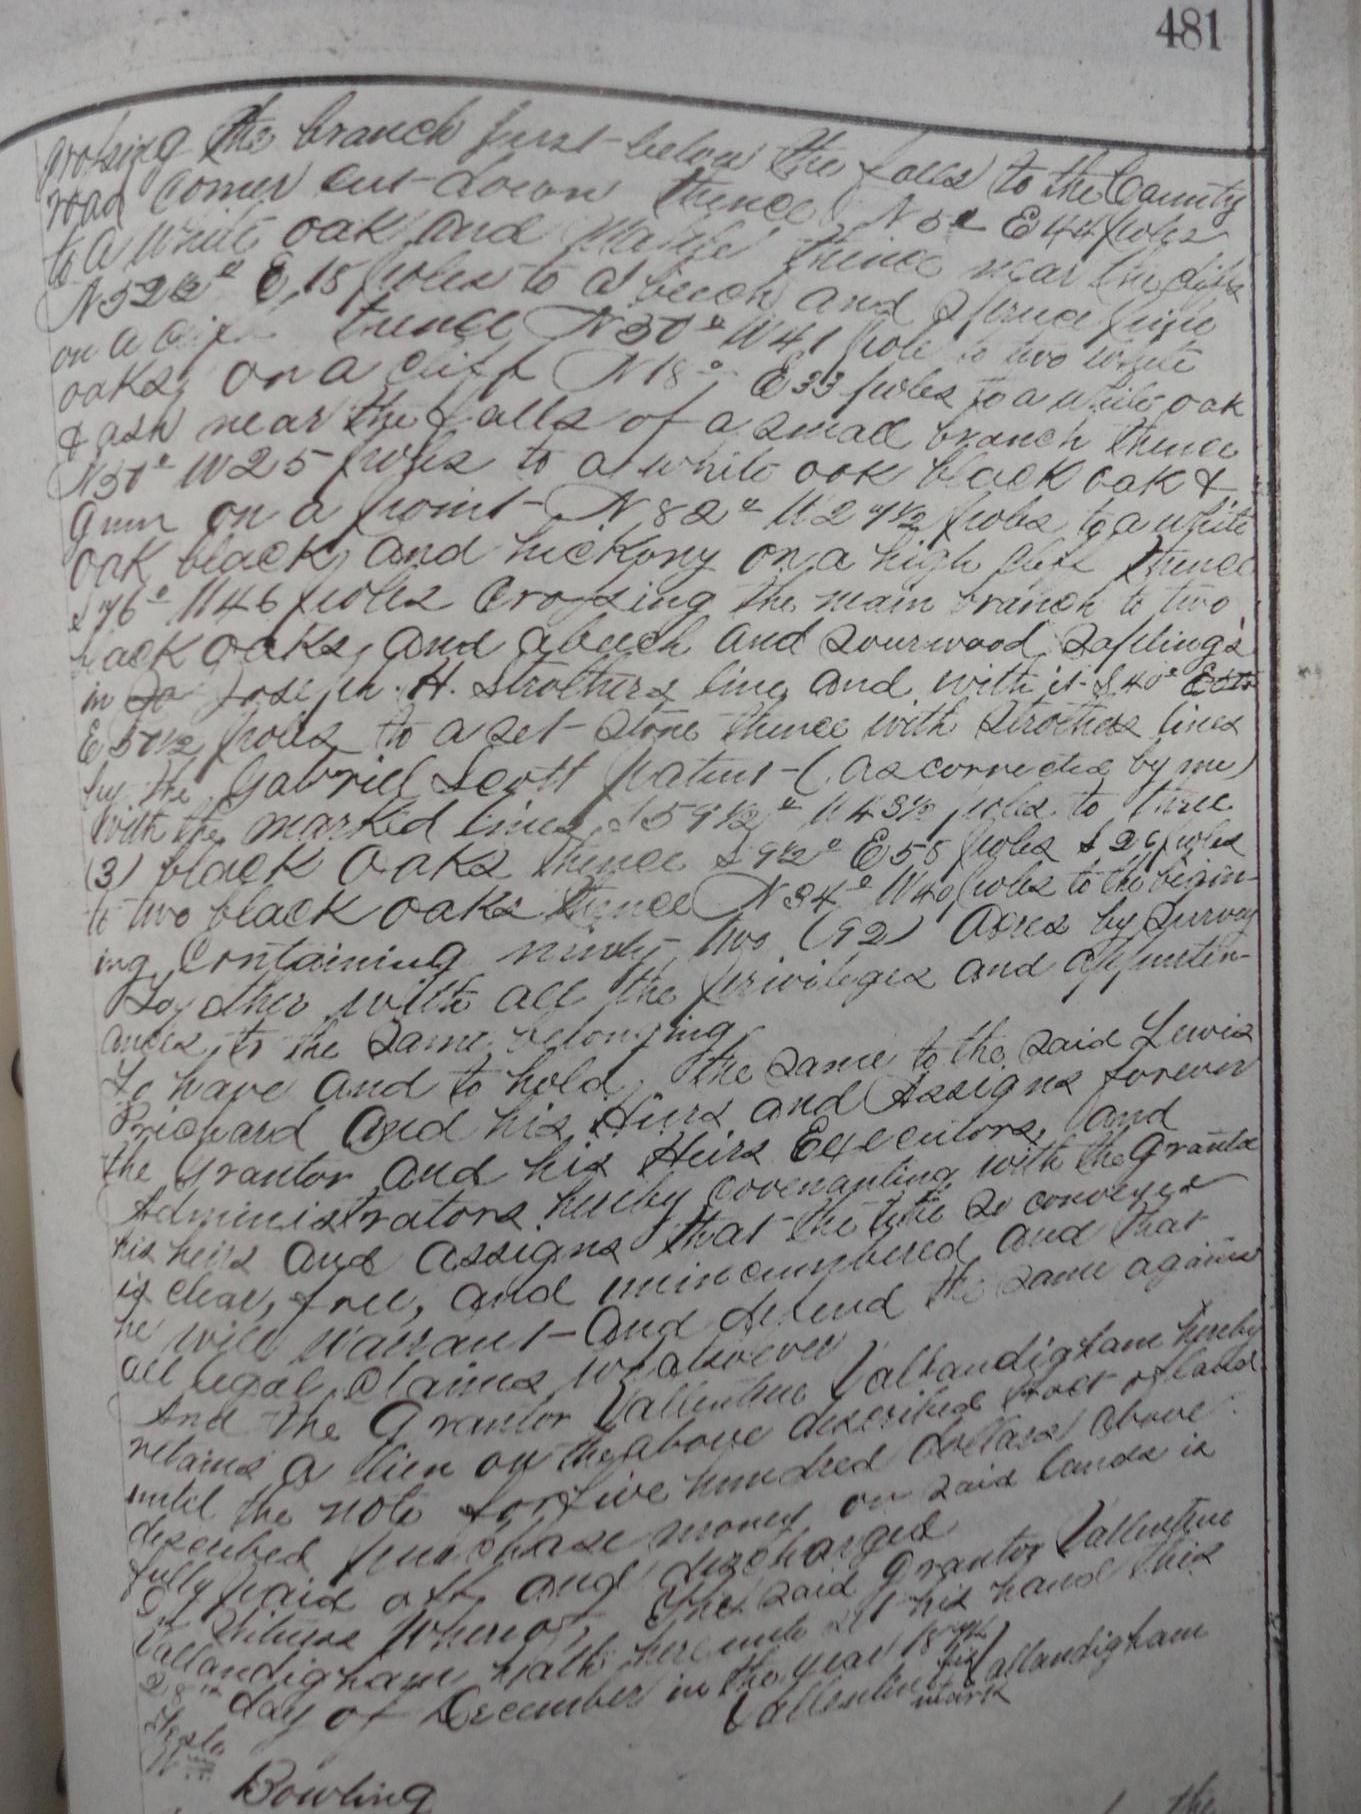 481
crossing the branch just below the falls to the County
road corner cut-down thence N 5° E 44 poles
to a White oak and Maple thence near the cliff
N 52½° E, 18 poles to a beech and Spruce pine
on a cliff thence N 50° W 41 pole to two white
oaks, on a cliff N 18° E 33 poles to a white oak
& ash near the falls of a small branch thence
N 50° W 25 poles to a white oak black oak &
Gum on a point N 82° W 27½ poles to a white
oak black, and hickory on a high cliff thence
S 76° W 46 poles Crossing the main branch to two
black oaks, and a beech and Sourwood Saplings
in Joseph H. Strothers line, and with it S 40°
E 57½ poles to a set stone thence with Strothers lines
by the Gabriel Scott patent (as corrected by me)
with the marked lines, S 59½° W 43½ poles to three
(3) black oaks thence S 9½° E 55 poles S 26 poles
to two black oaks thence N 84° W 40 poles to the begin-
ing, Containing ninety-two (92) Acres by Survey
Together with all the privileges and appurten-
ances, to the Same belonging
To have and to hold, the same to the said Lewis
Prichard and his Heirs and Assigns forever
the Grantor and his Heirs Executors, and
Administrators hereby covenanting with the Grantee
his heirs and assigns that the title so conveyed
is clear, free, and unincumbered and that
he will Warrant and defend the same against
all legal, Claims whatsoever
And the Grantor Vallentine Vallandigham hereby
retains a lien on the above described tract of land
until the note for five hundred dollars above
described purchase money on said lands is
fully paid off and discharged
In Witness Whereof, The said Grantor Vallentine
Vallandigham hath hereunto set his hand this
28th day of December in the year
his
Vallentine Vallandigham
mark
Teste
Wm
Bowling
the